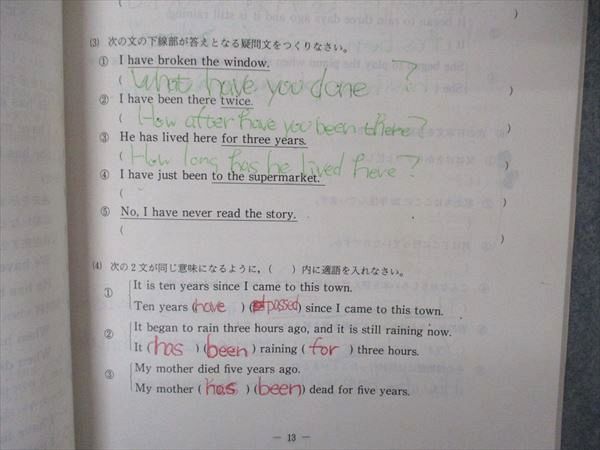 (3) 次の文の下線部が答えとなる疑問文をつくりなさい。
① I have broken the window.
( What have you done ? )
② I have been there twice.
( How after have you been there? )
③ He has lived here for three years.
( How long has he lived here? )
④ I have just been to the supermarket.
( )
⑤ No, I have never read the story.
( )
(4) 次の2文が同じ意味になるように,( )内に適語を入れなさい。
① It is ten years since I came to this town.
Ten years (have) (passed) since I came to this town.
② It began to rain three hours ago, and it is still raining now.
It (has) (been) raining (for) three hours.
③ My mother died five years ago.
My mother (has) (been) dead for five years.
— 13 —